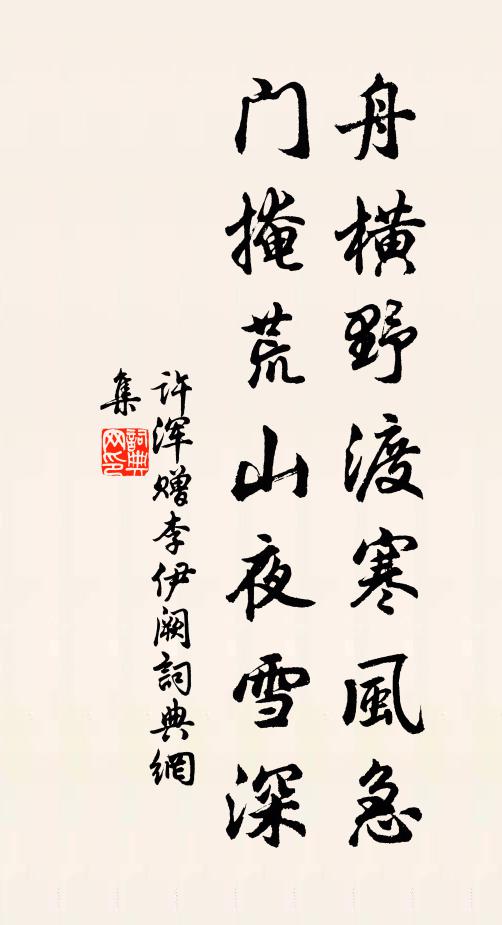 舟橫野渡寒風急
門掩荒山夜雪深
許渾贈李伊闕詞典網
集
詞典
网印